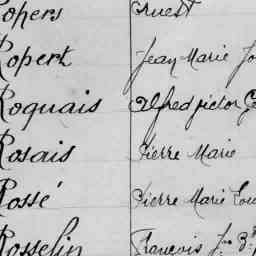 Rohers Ernest
Ropert Jean Marie Jo
Roquais Alfred victor G
Rosais Pierre Marie
Rossé Pierre Marie Lou
Rosselin François Jn Bt